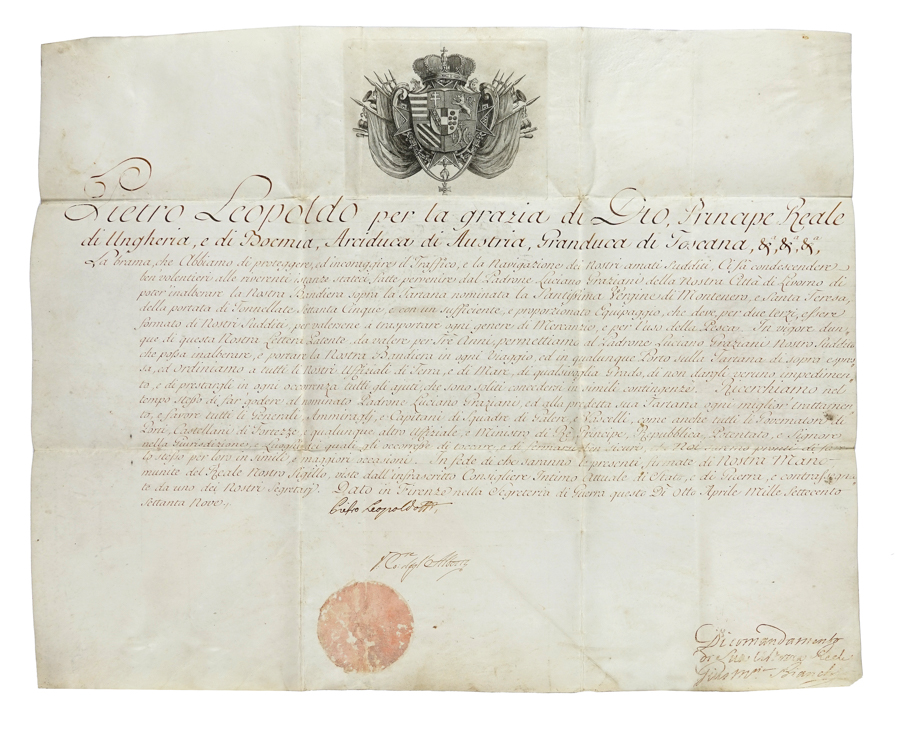 Pietro Leopoldo per la grazia di Dio, Principe Reale
di Ungheria, e di Boemia, Arciduca di Austria, Granduca di Toscana, &, &, &,
La brama, che Abbiamo di proteggere, ed incoraggire il Traffico, e la Navigazione dei Nostri amati Sudditi, Ci fà condescendere
ben volentieri alle riverenti istanze stateci fatte pervenire dal Padrone Luciano Graziani della Nostra Città di Livorno di
poter inalberare la Nostra Bandiera sopra la Tartana nominata la Santissima Vergine di Montenero, e Santa Teresa,
della portata di Tonnellate settanta Cinque, e con un sufficiente, e proporzionato Equipaggio, che deve per due terzi, essere
formato di Nostri Sudditi, per valersene a trasportare ogni genere di Mercanzie, e per l'uso della Pesca. In vigore dun-
que di questa Nostra Lettera Patente da valere per Trè Anni, permettiamo al Padrone Luciano Graziani Nostro Suddito
che possa inalberare, e portare la Nostra Bandiera in ogni Viaggio, ed in qualunque Porto sulla Tartana di sopra espres-
sa, ed ordiniamo a tutti i Nostri Uffiziali di Terra, e di Mare, di qualsivoglia Grado, di non dargli veruno impedimen-
to, e di prestargli in ogni occorrenza tutti gli ajuti, che sono soliti concedersi in simili contingenze. Ricerchiamo nel
tempo stesso di far godere al nominato Padrone Luciano Graziani, ed alla predetta sua Tartana ogni miglior trattamen-
to, e favore tutti i Generali, Ammiragli, e Capitani di Squadre di Galere, e Vascelli, come anche tutti i Governatori di
Porti, Castellani di Fortezze, e qualunque altro Uffiziale, e Ministro di Rè, Principe, Repubblica, Potentato, e Signore
nella Giurisdizione, e Luoghi de quali gli occorrerà di toccare, e di
lo stesso per loro in simili, e maggiori occasioni. In fede di che saranno le presenti, firmate di Nostra Mano
munite del Reale Nostro Sigillo, viste dall'infrascritto Consigliere Intimo Attuale di Stato, e di Guerra, e contrassegna-
te da uno dei Nostri Segretarj. Dato in Firenze nella Segreteria di Guerra questo Dì otto Aprile Mille Settecento
settanta Nove.
Pietro Leopoldo
Di comandamento
di Sua Altezza Reale